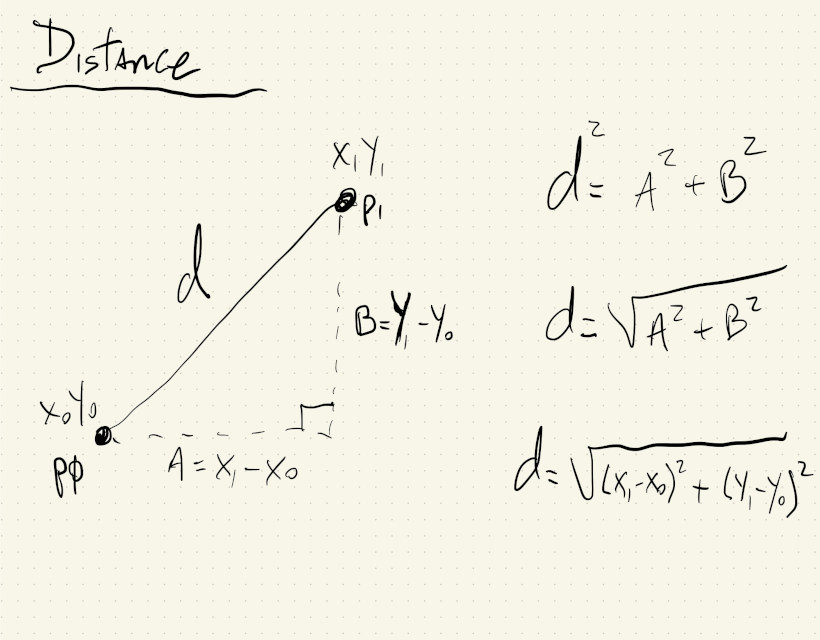 Distance
X₁Y₁
P₁
d
B=Y₁-Y₀
X₀Y₀
PΦ
A=X₁-X₀
d²=A²+B²
d=√A²+B²
d=√(X₁-X₀)²+(Y₁-Y₀)²